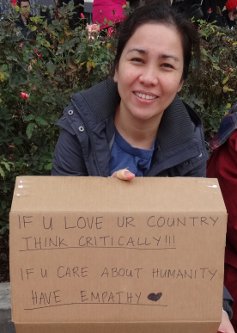 IF U LOVE UR COUNTRY
THINK CRITICALLY!!!
IF U CARE ABOUT HUMANITY
HAVE EMPATHY ♥